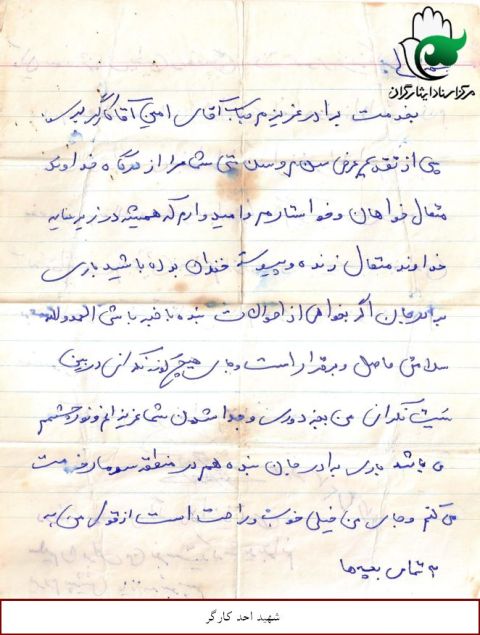 مرکز اسناد ایثارگران
بخدمت برادر عزیزم جناب آقای امین آقا کارگر برسد
پس از تقدیم عرض سلام و سلامتی شما را از درگاه خداوند
متعال خواهان و خواستارم و امیدوارم که همیشه در زیر سایه
خداوند متعال زنده و پیوسته خندان بوده باشید باری
برادرجان اگر بخواهی از احوالات بنده با خبر باشی الحمدولله
سلامتی حاصل و برقرار است و جای هیچ گونه نگرانی در بین
نیست نگرانی من بجز دوری و جدا شدن شما عزیزانم و نور چشمم
می باشد باری برادر جان بنده هم در منطقه سومار خدمت
می کنم و جای من خیلی خوب و راحت است از قول من به
تمامی بچه ها
شهید احد کارگر